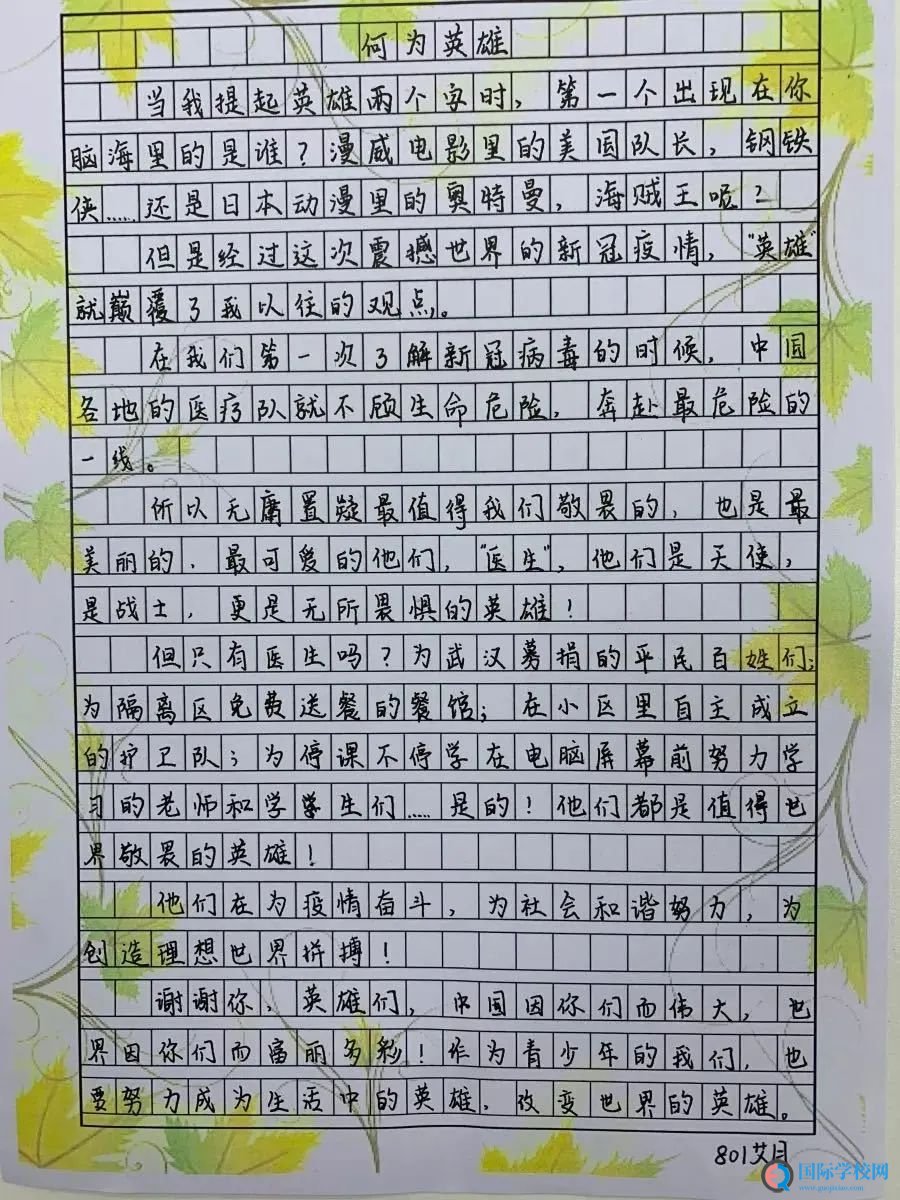 何为英雄
当我提起英雄两个字时，第一个出现在你
脑海里的是谁？漫威电影里的美国队长，钢铁
侠……还是日本动漫里的奥特曼，海贼王呢？
但是经过这次震撼世界的新冠疫情，“英雄”
就巅覆了我以往的观点。
在我们第一次了解新冠病毒的时候，中国
各地的医疗队就不顾生命危险，奔赴最危险的
一线。
所以无庸置疑最值得我们敬畏的，也是最
美丽的，最可爱的他们，“医生”，他们是天使，
是战士，更是无所畏惧的英雄！
但只有医生吗？为武汉募捐的平民百姓们；
为隔离区免费送餐的餐馆；在小区里自主成立
的护卫队；为停课不停学在电脑屏幕前努力学
习的老师和学学生们……是的！他们都是值得世
界敬畏的英雄！
他们在为疫情奋斗，为社会和谐努力，为
创造理想世界拼搏！
谢谢你，英雄们，中国因你们而伟大，世
界因你们而富丽多彩！作为青少年的我们，也
要努力成为生活中的英雄，改变世界的英雄。
801艾月
国际学校网
www.guojixiao.com